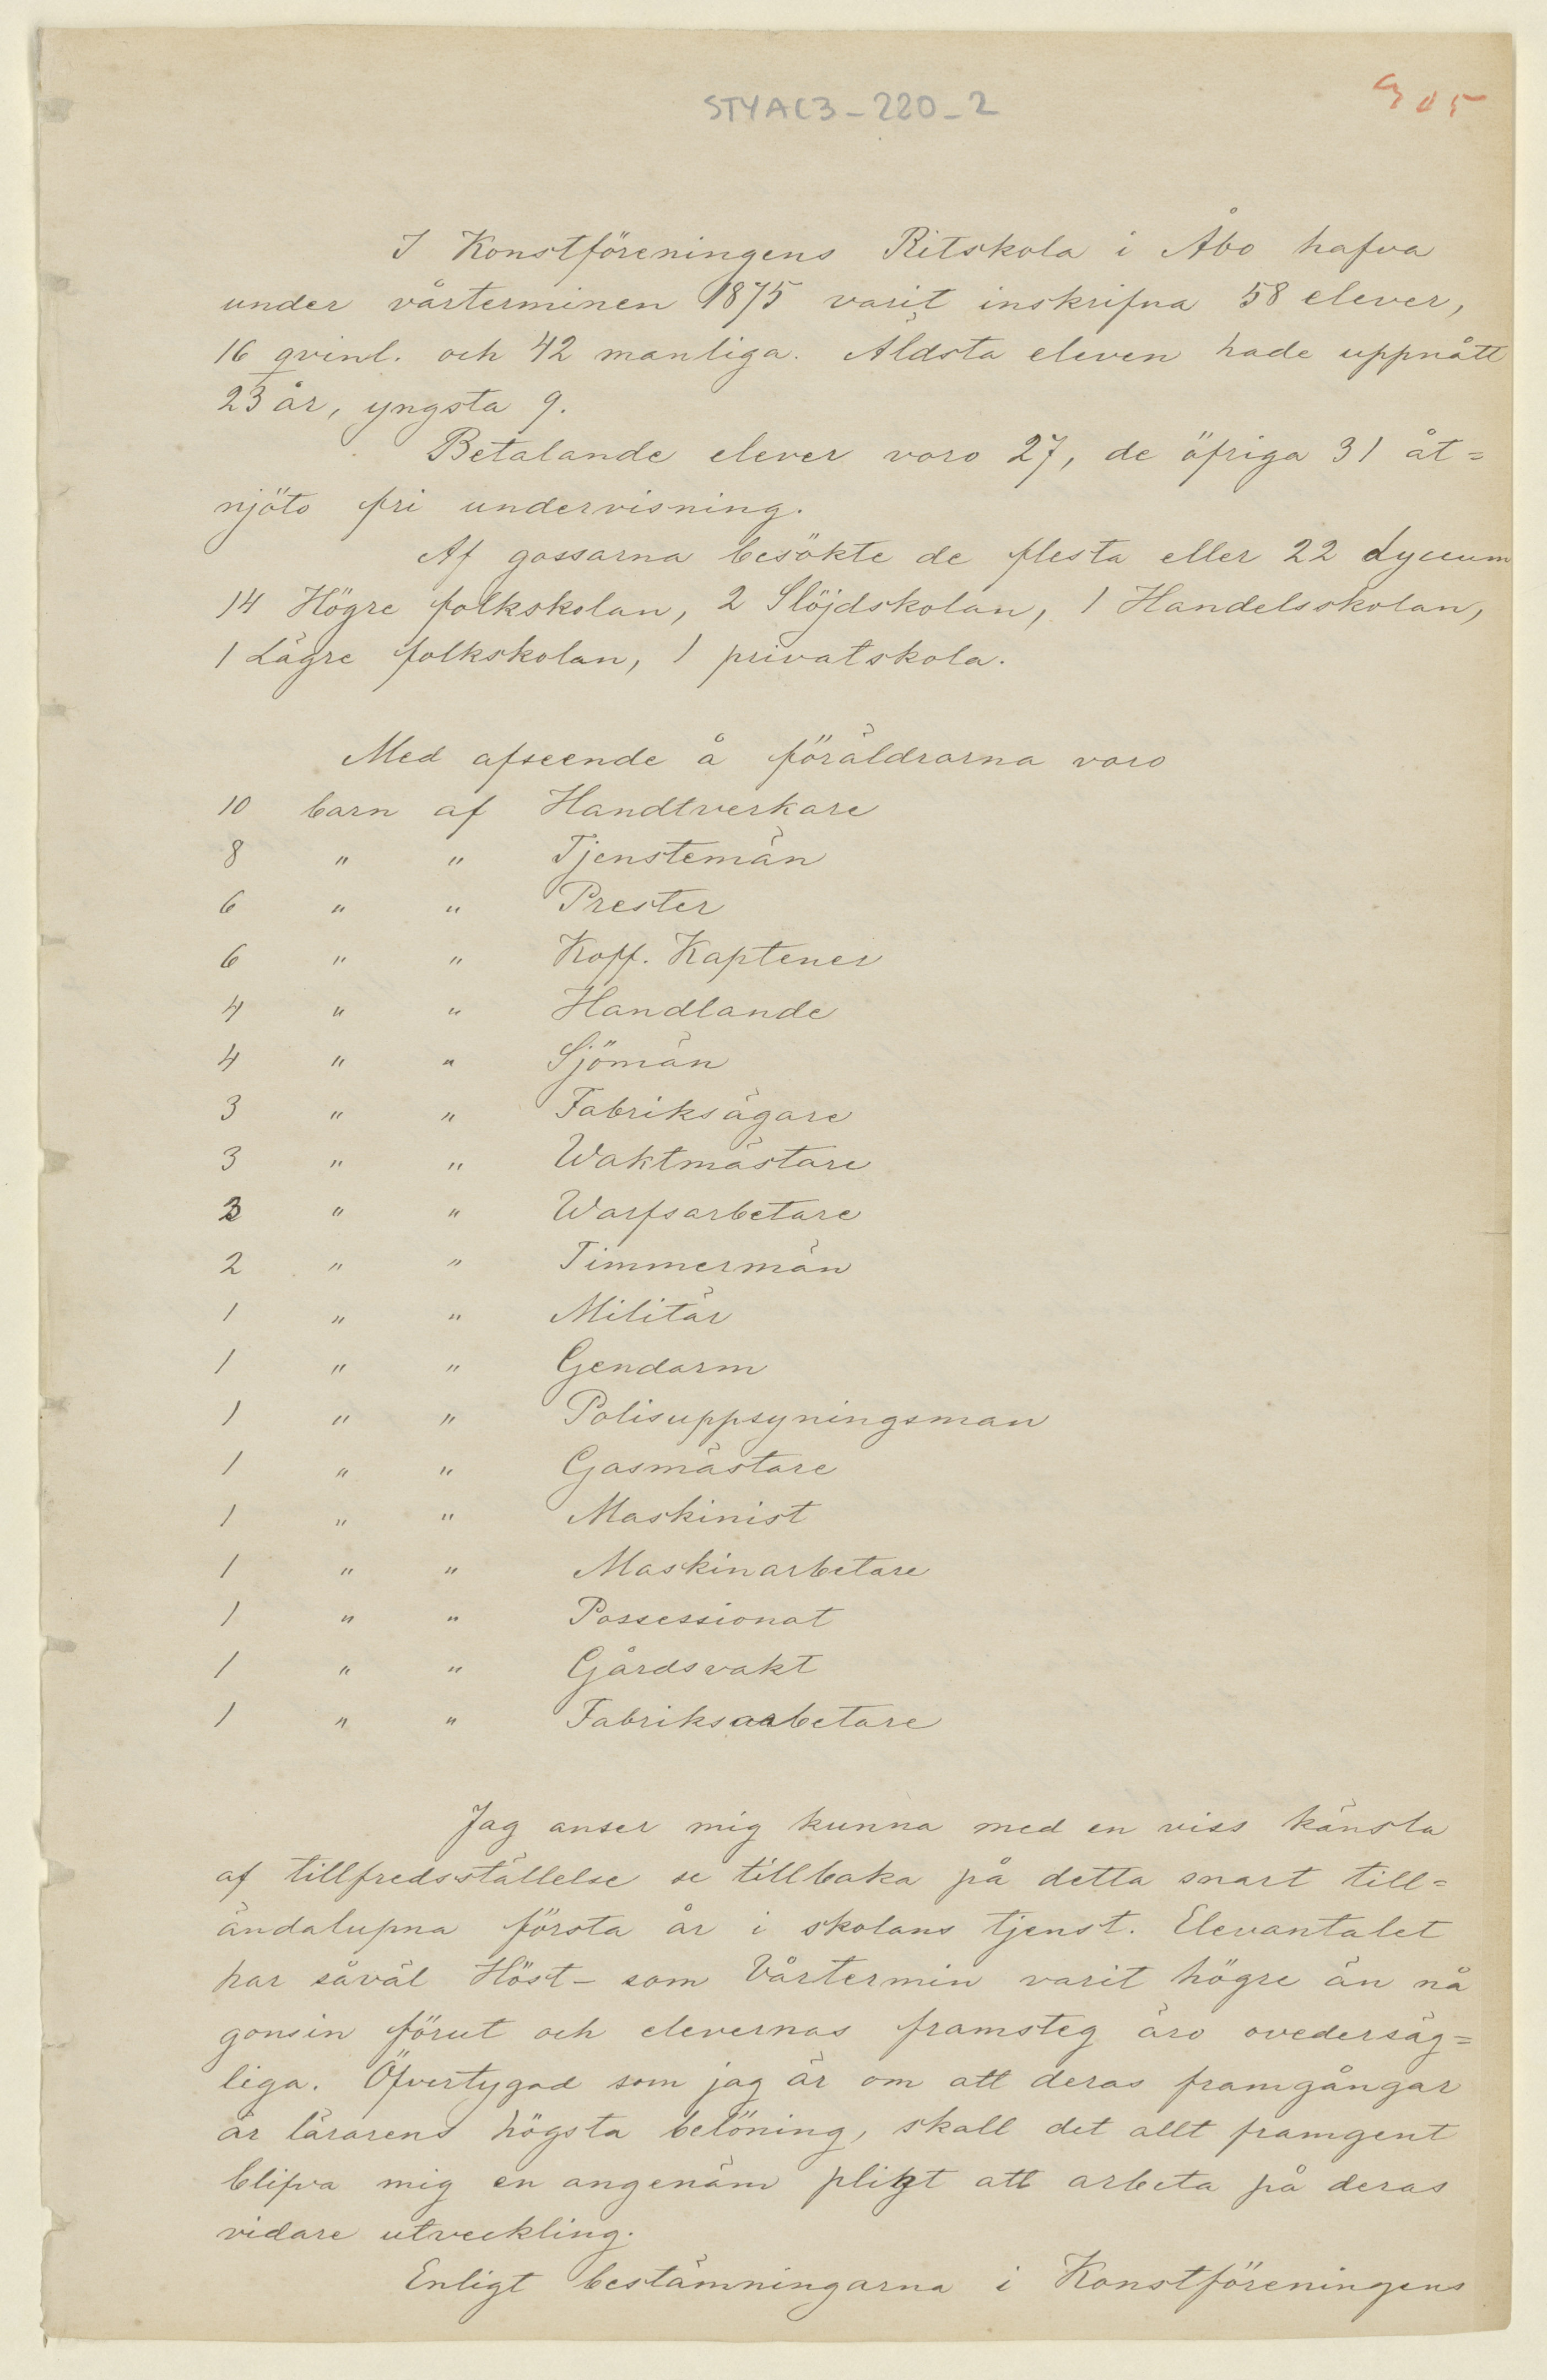 STYAC3-220-2
305
I Konstföreningens Ritskola i Åbo hafva
under vårterminen 1875 varit inskrifna 58 elever,
16 qvinl. och 42 manliga. Äldsta eleven hade uppnått
23 år, yngsta 9.
Betalande elever voro 27, de öfriga 31 åt=
njöto fri undervisning.
Af gossarna besökte de flesta eller 22 Lyceum
14 Högre folkskolan, 2 Slöjdskolan, 1 Handelsskolan,
1 Lägre folkskolan, 1 privatskola.
Med afseende å föräldrarna voro
10 barn af Handtverkare
8 " " Tjenstemän
6 " " Prester
6 " " Koff. Kaptener
4 " " Handlande
4 " " Sjömän
3 " " Fabriksägare
3 " " Waktmästare
3 " " Warfsarbetare
2 " " Timmermän
1 " " Militär
1 " " Gendarm
1 " " Polisuppsyningsman
1 " " Gasmästare
1 " " Maskinist
1 " " Maskinarbetare
1 " " Possessionat
1 " " Gårdsvakt
1 " " Fabriksarbetare
Jag anser mig kunna med en viss känsla
af tillfredsställelse se tillbaka på detta snart till=
ändalupna första år i skolans tjenst. Elevantalet
har såväl Höst- som Vårtermin varit högre än nå
gonsin förut och elevernas framsteg äro ovedersäg=
liga. Öfvertygad som jag är om att deras framgångar
är lärarens högsta belöning, skall det allt framgent
blifva mig en angenäm pligt att arbeta på deras
vidare utveckling.
Enligt bestämningarna i Konstföreningens